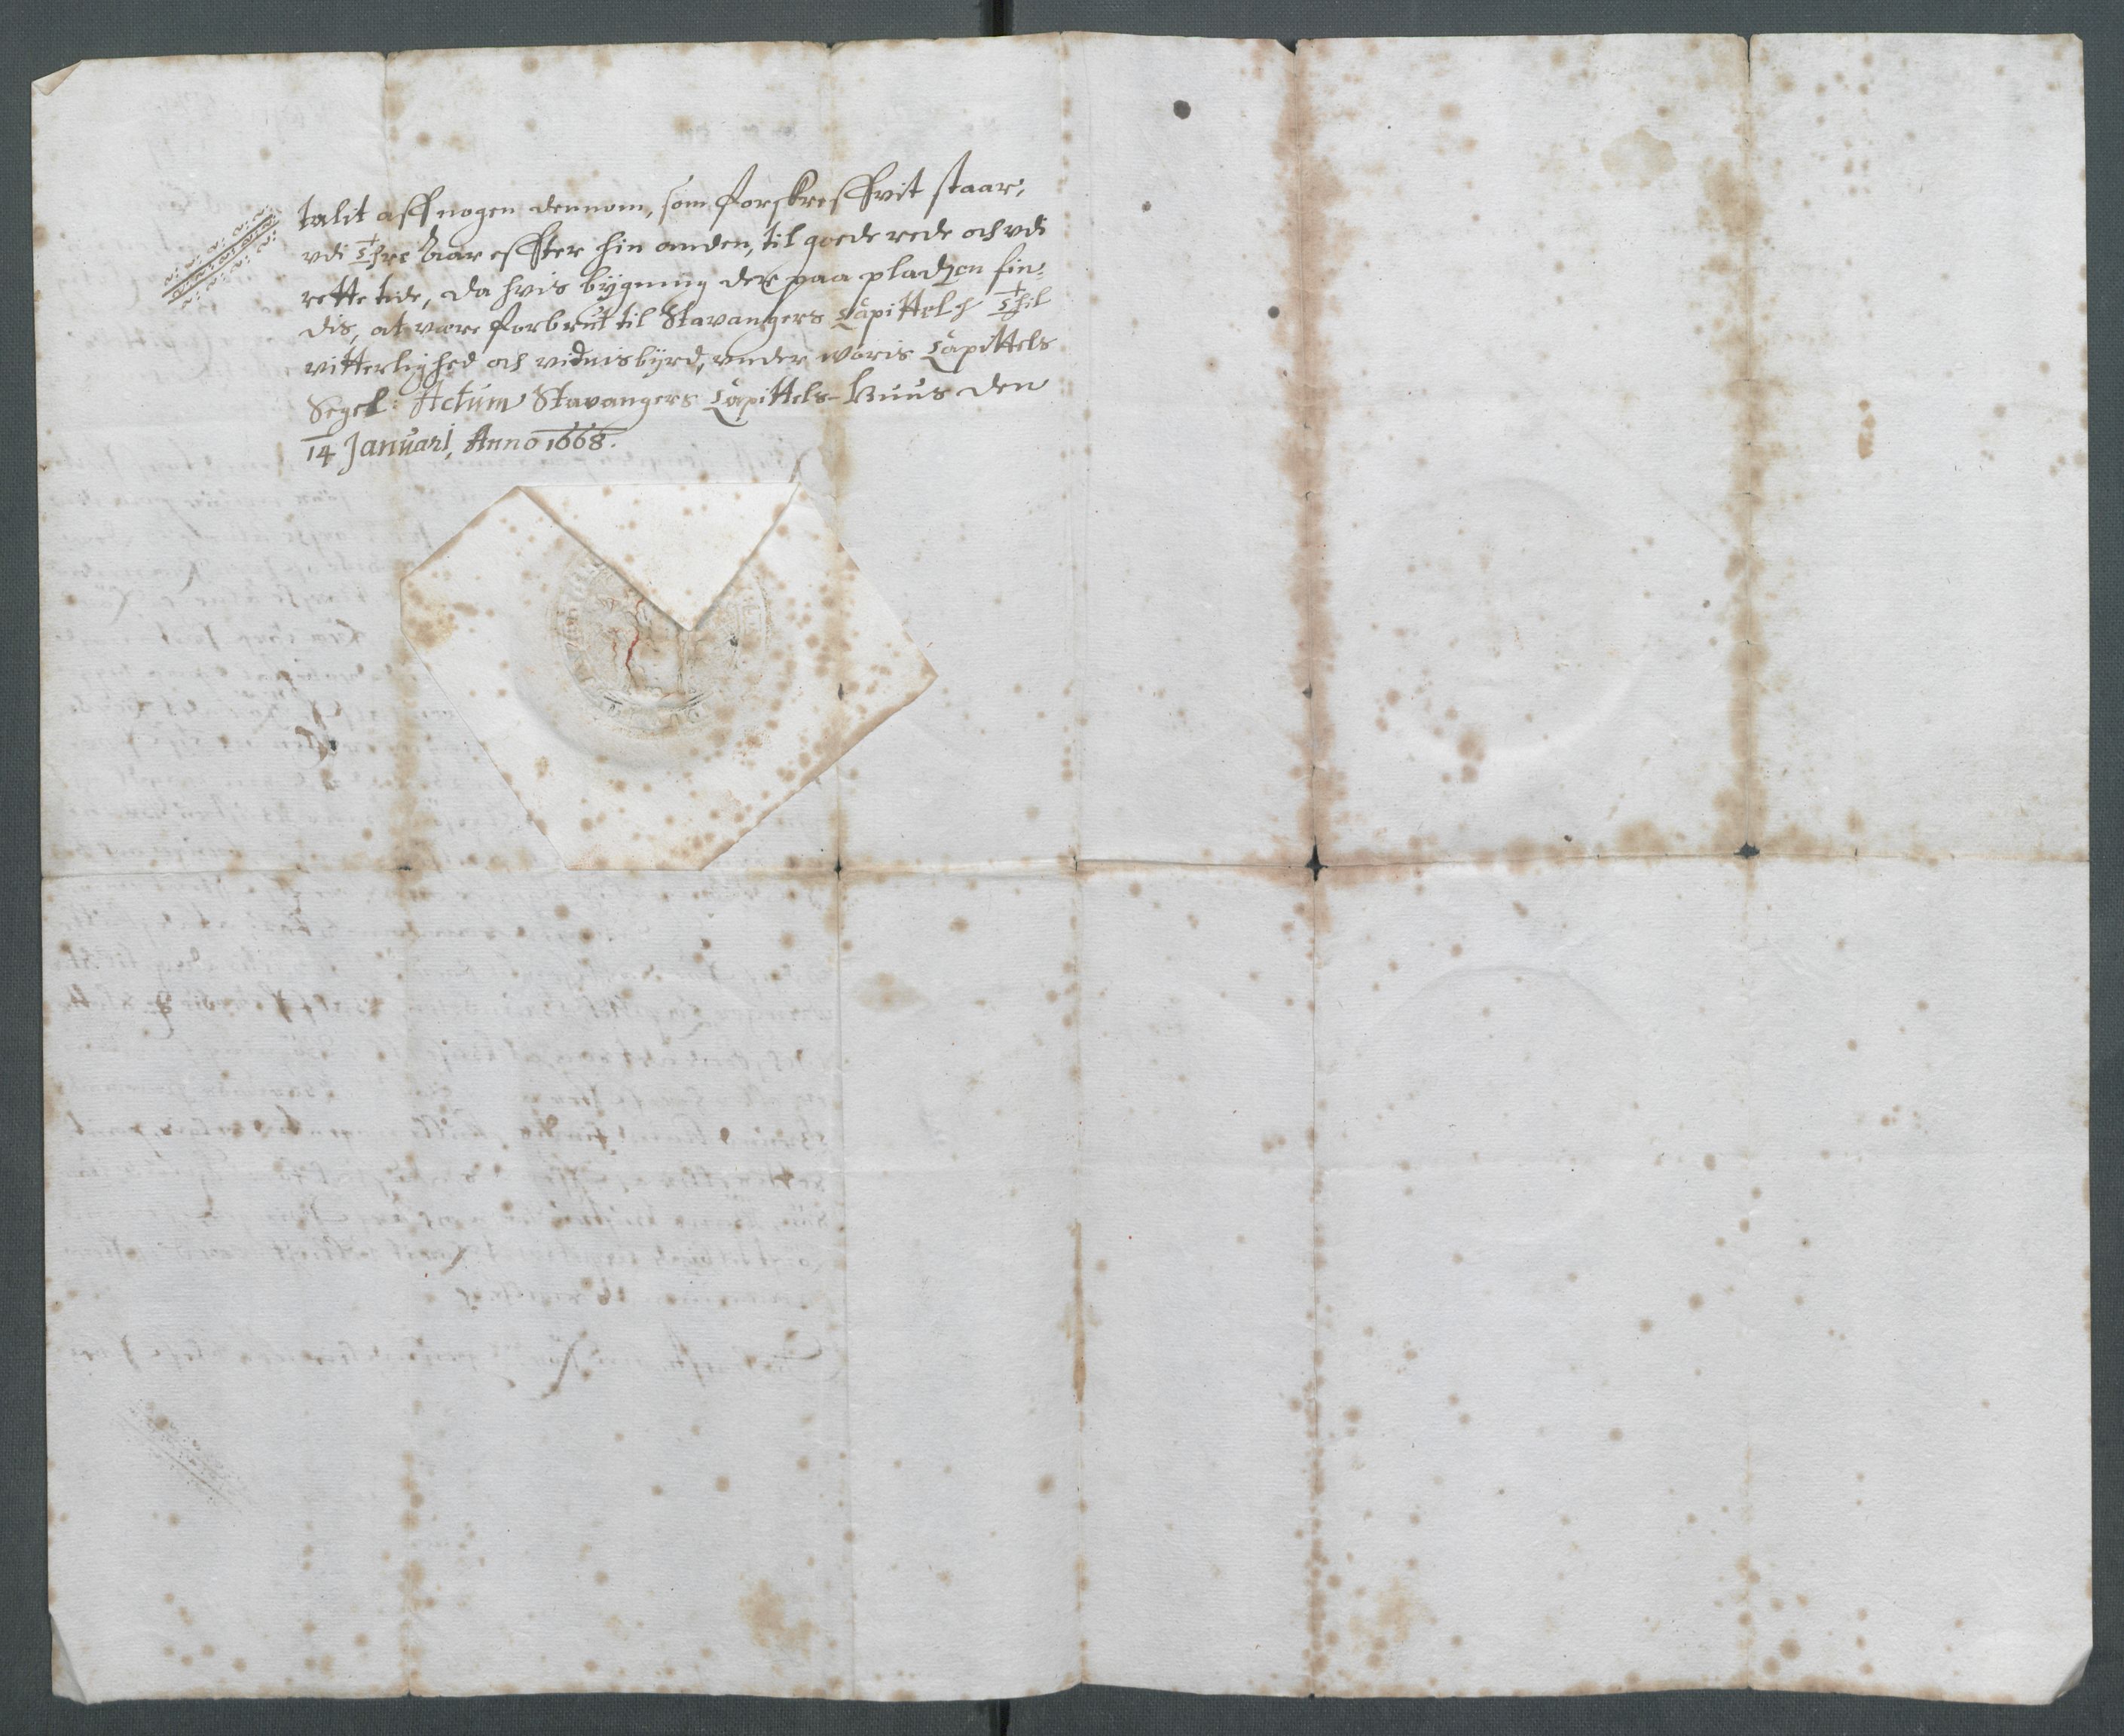 talit aff nogen dennom, som forskreffvit staar,
vdi Thre Aar effter hin anden, til goede rede och vdi
rette tide, da hvis bÿgning der paa pladzen fin-
dis, at være forbrut til Stavangers Capittel / Thil
vitterlighed och vidnisbÿrd, vnder woris Capittels
Segel: Actum Stavangers Capittels-Huus den
14 Januari, Anno 1668.